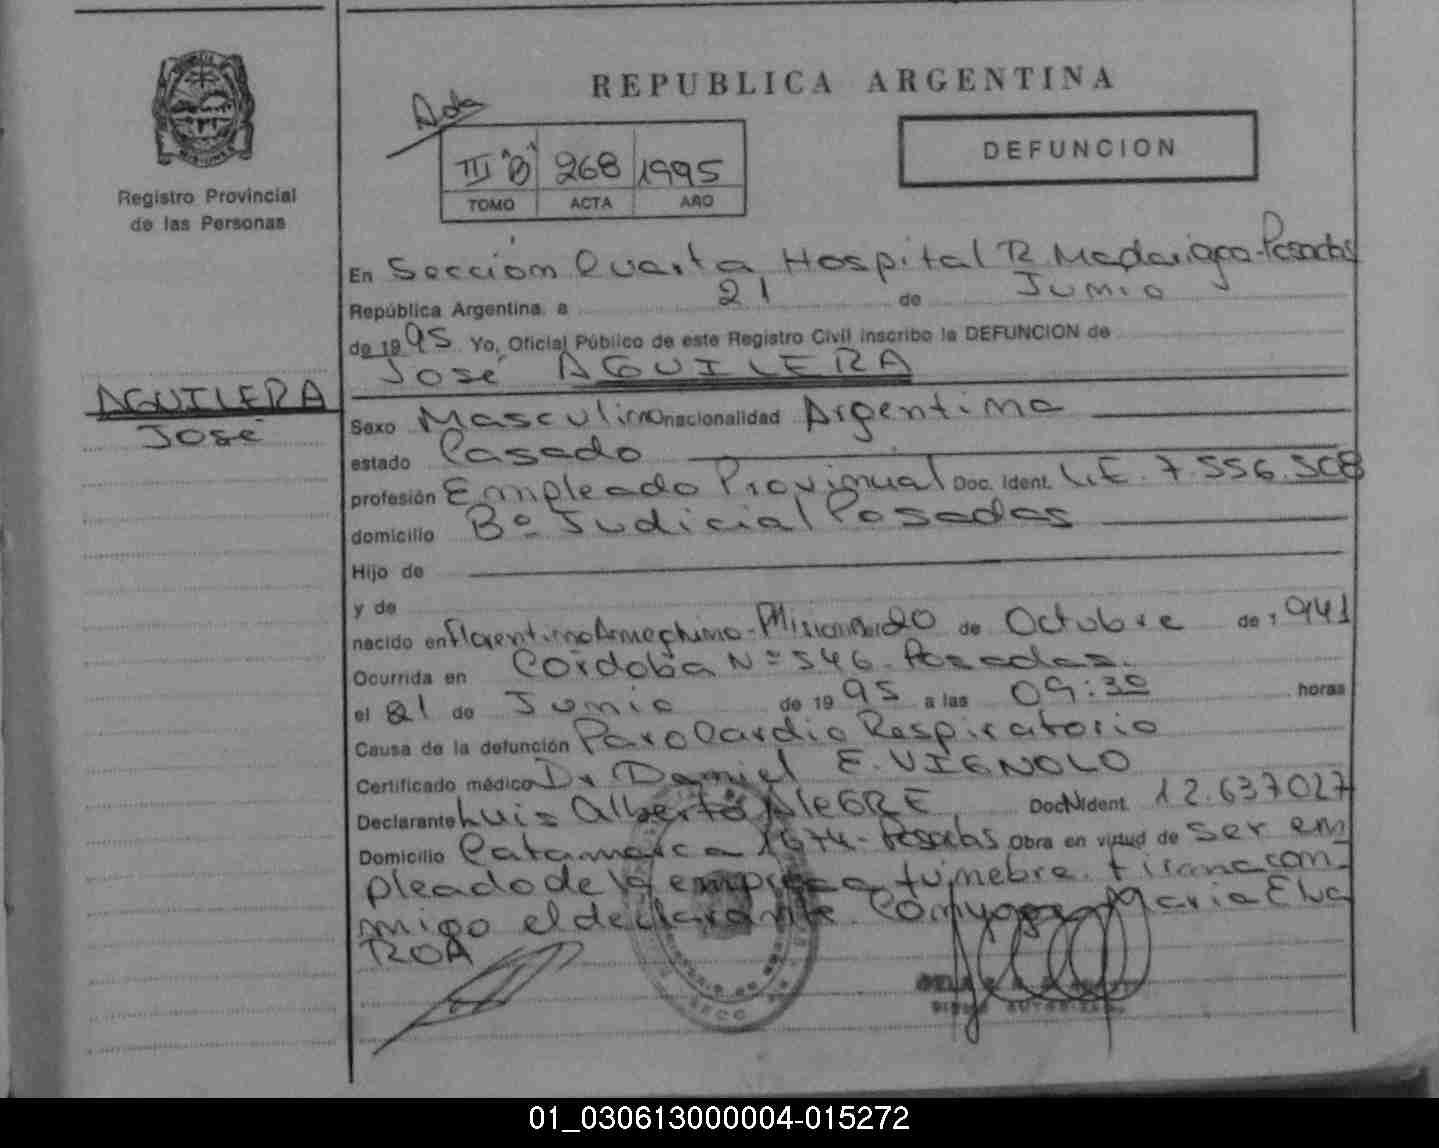 REPUBLICA ARGENTINA
Registro Provincial
de las Personas
III "B" 268 1995
TOMO ACTA AÑO
DEFUNCION
En Sección Cuarta Hospital R. Madariaga-Posadas
República Argentina, a 21 de Junio
de 1995 Yo, Oficial Público de este Registro Civil inscribo la DEFUNCION de
José AGUILERA
AGUILERA
José
Sexo Masculino nacionalidad Argentina
estado Casado
profesión Empleado Provincial Doc. Ident. L.E. 7.556.508
domicilio Bº Judicial Posadas
Hijo de
y de
nacido en Florentino Ameghino-Misiones 20 de Octubre de 1941
Ocurrida en Córdoba Nº 546. Posadas.
el 21 de Junio de 1995 a las 09:30 horas
Causa de la defunción Paro Cardio Respiratorio
Certificado médico Dr Daniel E. VIGNOLO
Declarante Luis Alberto AleGRE Doc. Ident. 12.637027
Domicilio Catamarca 1674-Posadas Obra en virtud de ser em
pleado de la empresa fúnebre. firmacon-
migo el declarante. Cónyuge María Elva
ROA
01_030613000004-015272